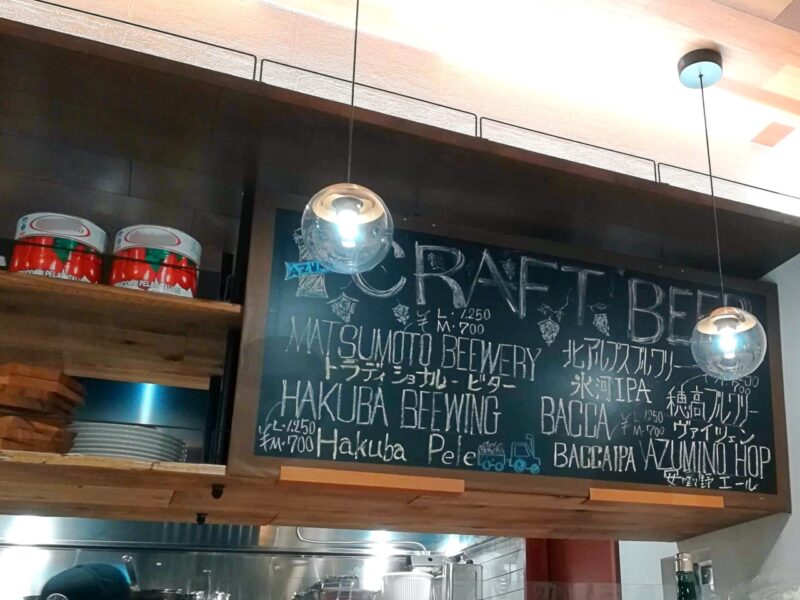 CRAFT BEER
AZUM
L・1.250
M・700
MATSUMOTO BEEWERY
トラディショナル－ビター
HAKUBA BEEWING
L・1.250
¥M・700
Hakuba Pele
北アルプスブルワリー
氷河IPA
BACCA
M・700
BACCAIPA
穂高ブルワリー
ヴァイツェン
AZUMINO HOP
安曇野エール